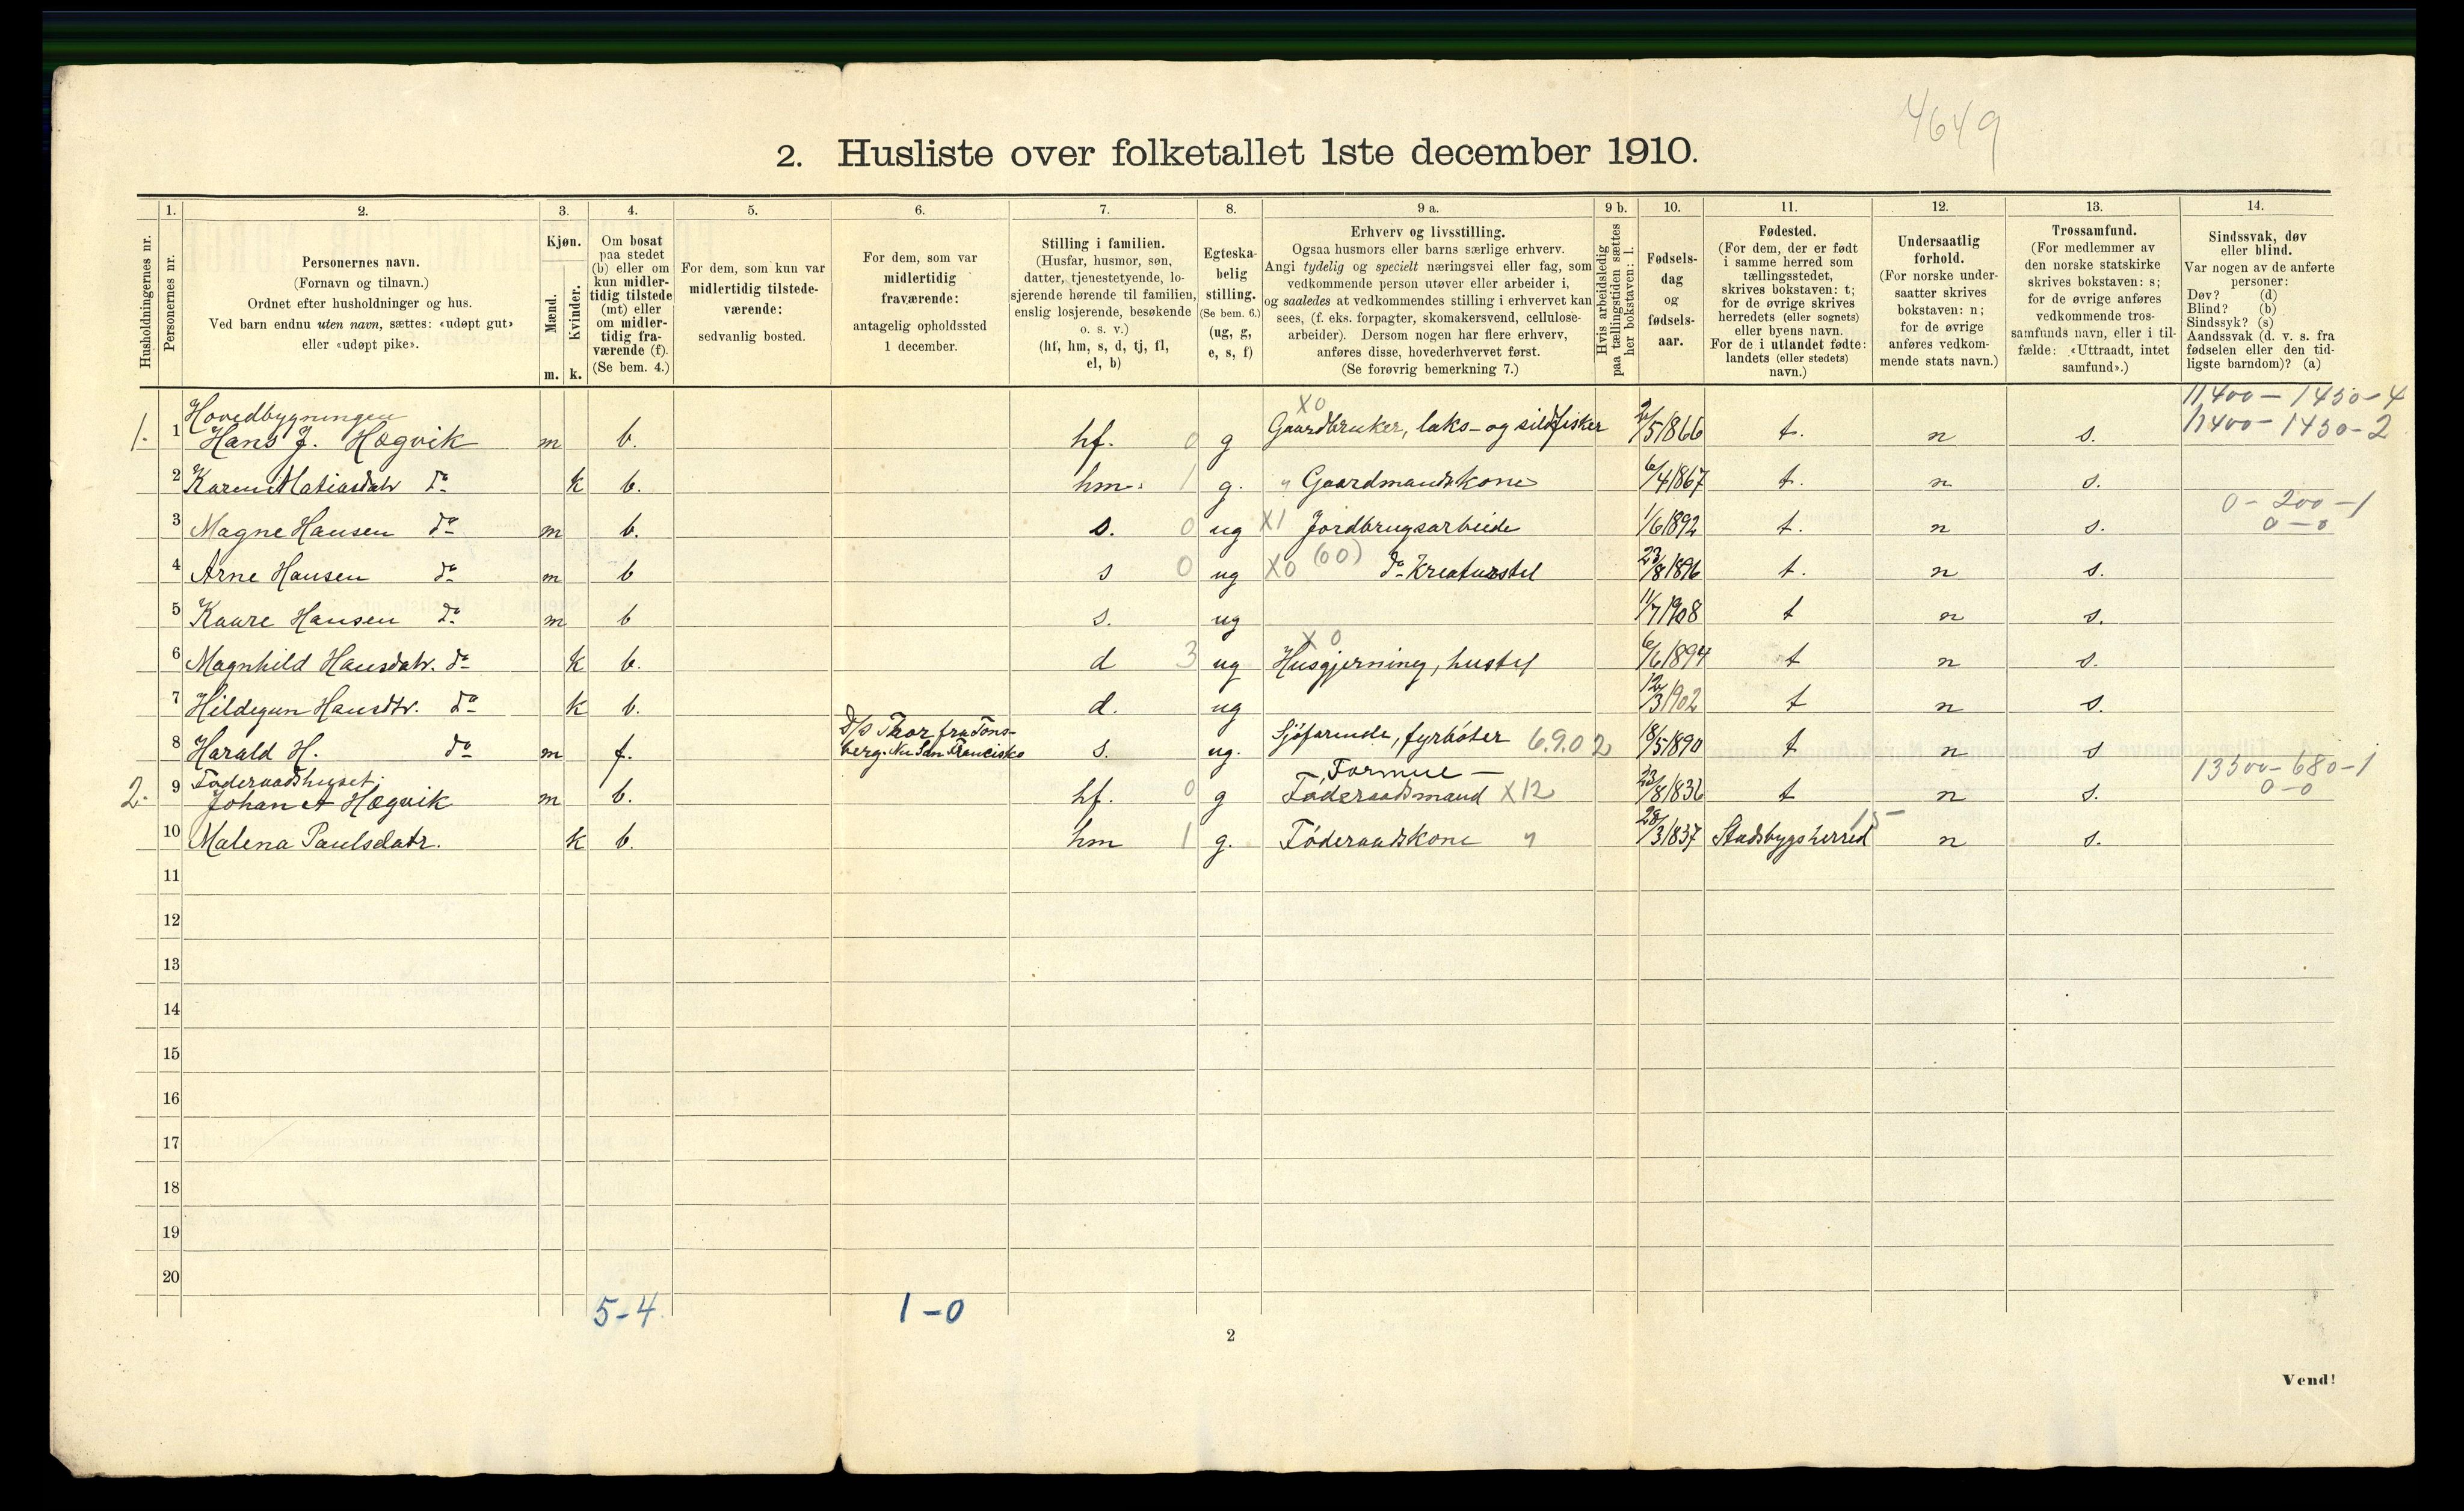 4649
2. Husliste over folketallet 1ste december 1910.
Husholdningernes nr.
1.
Personernes nr.
2.
Personernes navn.
(Fornavn og tilnavn.)
Ordnet efter husholdninger og hus.
Ved barn endnu uten navn, sættes: «udøpt gut»
eller «udøpt pike».
3.
Kjøn.
Mænd.
Kvinder.
m. k.
4.
Om bosat
paa stedet
(b) eller om
kun midler-
tidig tilstede
(mt) eller
om midler-
tidig fra-
værende (f).
(Se bem. 4.)
5.
For dem, som kun var
midlertidig tilstede-
værende:
sedvanlig bosted.
6.
For dem, som var
midlertidig
fraværende:
antagelig opholdssted
1 december.
7.
Stilling i familien.
(Husfar, husmor, søn,
datter, tjenestetyende, lo-
sjerende hørende til familien,
enslig losjerende, besøkende
o. s. v.)
(hf, hm, s, d, tj, fl,
el, b)
8.
Egteska-
belig
stilling.
(Se bem. 6.)
(ug, g,
e, s, f)
9 a.
Erhverv og livsstilling.
Ogsaa husmors eller barns særlige erhverv.
Angi tydelig og specielt næringsvei eller fag, som
vedkommende person utøver eller arbeider i,
og saaledes at vedkommendes stilling i erhvervet kan
sees, (f. eks. forpagter, skomakersvend, cellulose-
arbeider). Dersom nogen har flere erhverv,
anføres disse, hovederhvervet først.
(Se forøvrig bemerkning 7.)
9 b.
Hvis arbeidsledig
paa tællingstiden sættes
her bokstaven: l.
10.
Fødsels-
dag
og
fødsels-
aar.
11.
Fødested.
(For dem, der er født
i samme herred som
tællingsstedet,
skrives bokstaven: t;
for de øvrige skrives
herredets (eller sognets)
eller byens navn.
For de i utlandet fødte:
landets (eller stedets)
navn.)
12.
Undersaatlig
forhold.
(For norske under-
saatter skrives
bokstaven: n;
for de øvrige
anføres vedkom-
mende stats navn.)
13.
Trossamfund.
(For medlemmer av
den norske statskirke
skrives bokstaven: s;
for de øvrige anføres
vedkommende tros-
samfunds navn, eller i til-
fælde: «Uttraadt, intet
samfund».)
14.
Sindssvak, døv
eller blind.
Var nogen av de anførte
personer:
Døv? (d)
Blind? (b)
Sindssyk? (s)
Aandssvak (d. v. s. fra
fødselen eller den tid-
ligste barndom)? (a)
Hovedbygningen X0 11400-1450-4
1. 1 Hans J. Hægvik m b. hf. 0 g Gaardbruker, laks- og sildfisker 2/5 1866 t. n s. 11400-1450-2
2 Karen Matiasdatr do k b. hm. 1 g. " Gaardmandskone 6/4 1867 t. n s.
3 Magne Hansen do m b. s. 0 ug X1 Jordbrugsarbeide 1/6 1892 t. n s. 0-200-1
0-0
4 Arne Hansen do m b s 0 ug X0 (00) do Kreaturstel 23/8 1896 t. n s.
5 Kaare Hansen do m b s. ug 11/7 1908 t n s.
X0
6 Magnhild Hansdatr. do k b. d 3 ug Husgjerning, hustel 6/6 1894 t n s.
7 Hildegun Hansdtr. do k b. d. ug 12/3 1902 t n s.
D/S Thor fra Tøns-
8 Harald H. do m f. berg. Nu San Francisko s. ug. Sjöfarende, fyrbøter 6.9.02 18/5 1890 t n s
Føderaadshuset. Formue - 13500-680-1
2. 9 Johan A Hægvik m b. hf. 0 g Føderaadsmand X12 23/8 1836 t n s. 0-0
15
10 Malena Paulsdatr. k b. hm 1 g. Føderaadskone " 28/3 1837 Stadsbygsherred n s.
11
12
13
14
15
16
17
18
19
20
5-4 1-0
2
Vend!